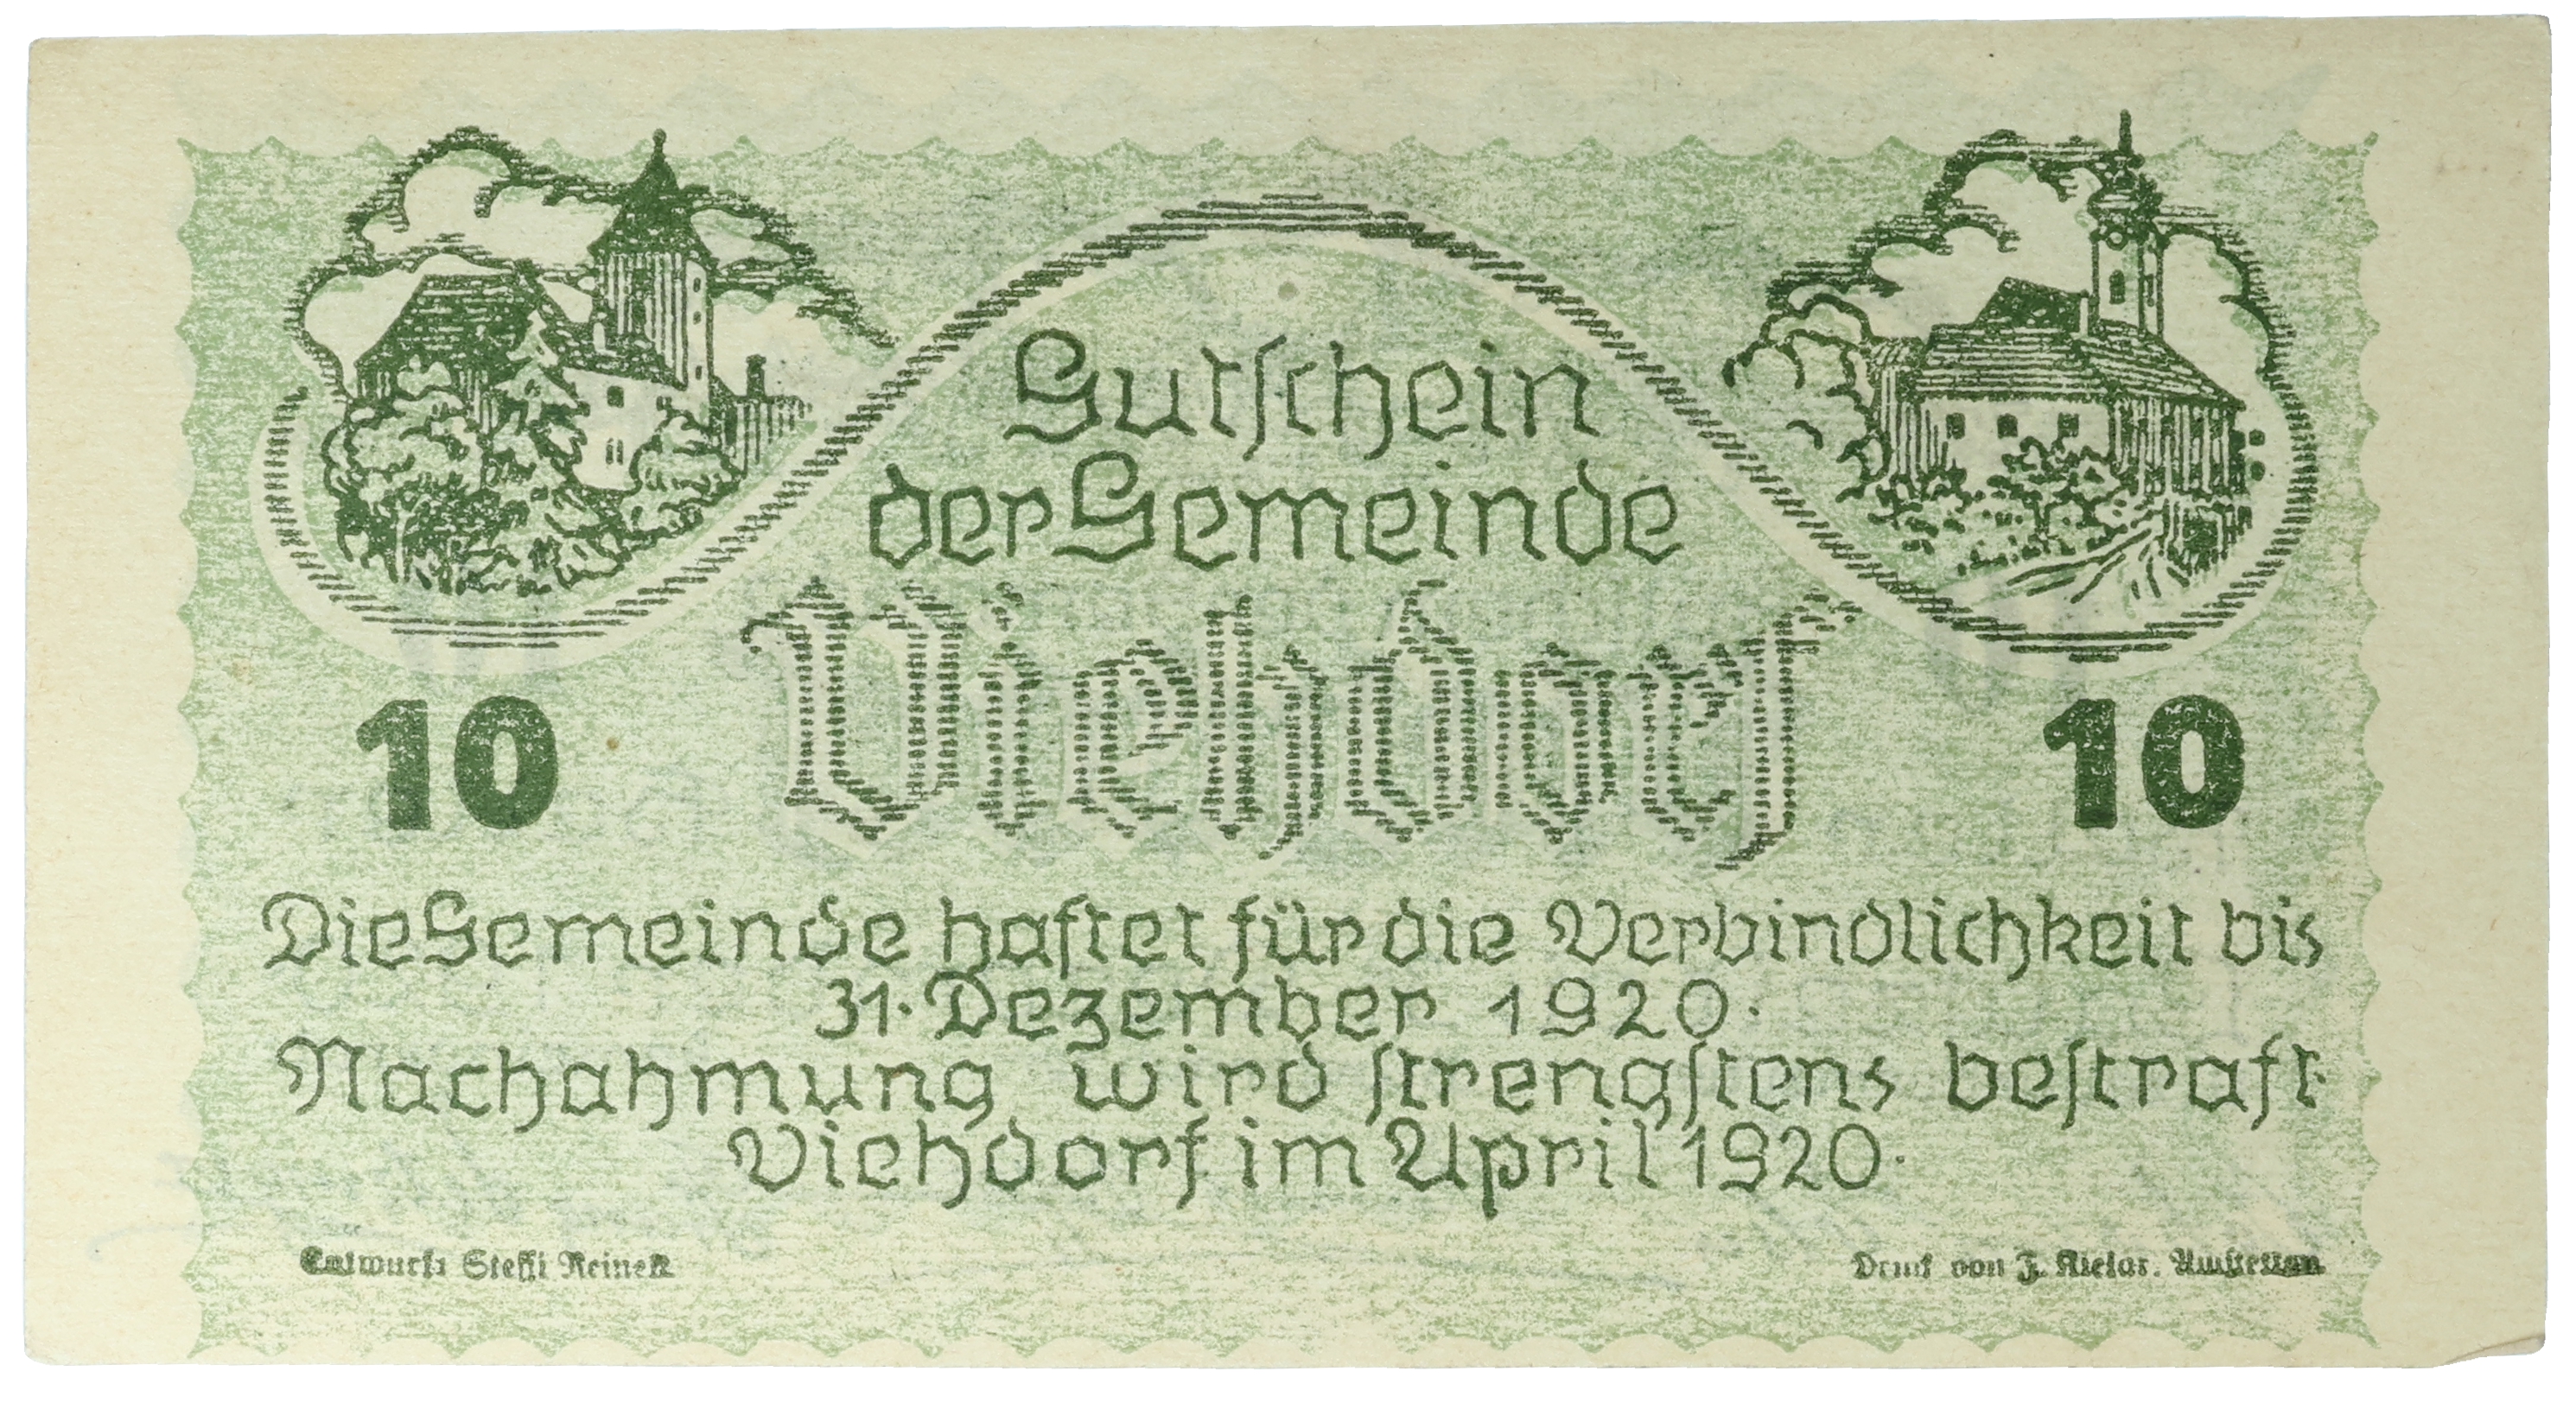 Gutschein
der Gemeinde
Viehdorf
10 10
Die Gemeinde haftet für die Verbindlichkeit bis
31. Dezember 1920.
Nachahmung wird strengstens bestraft.
Viehdorf im April 1920.
Entwurf: Steffi Reineck
Druck von J. Kielar. Amstetten